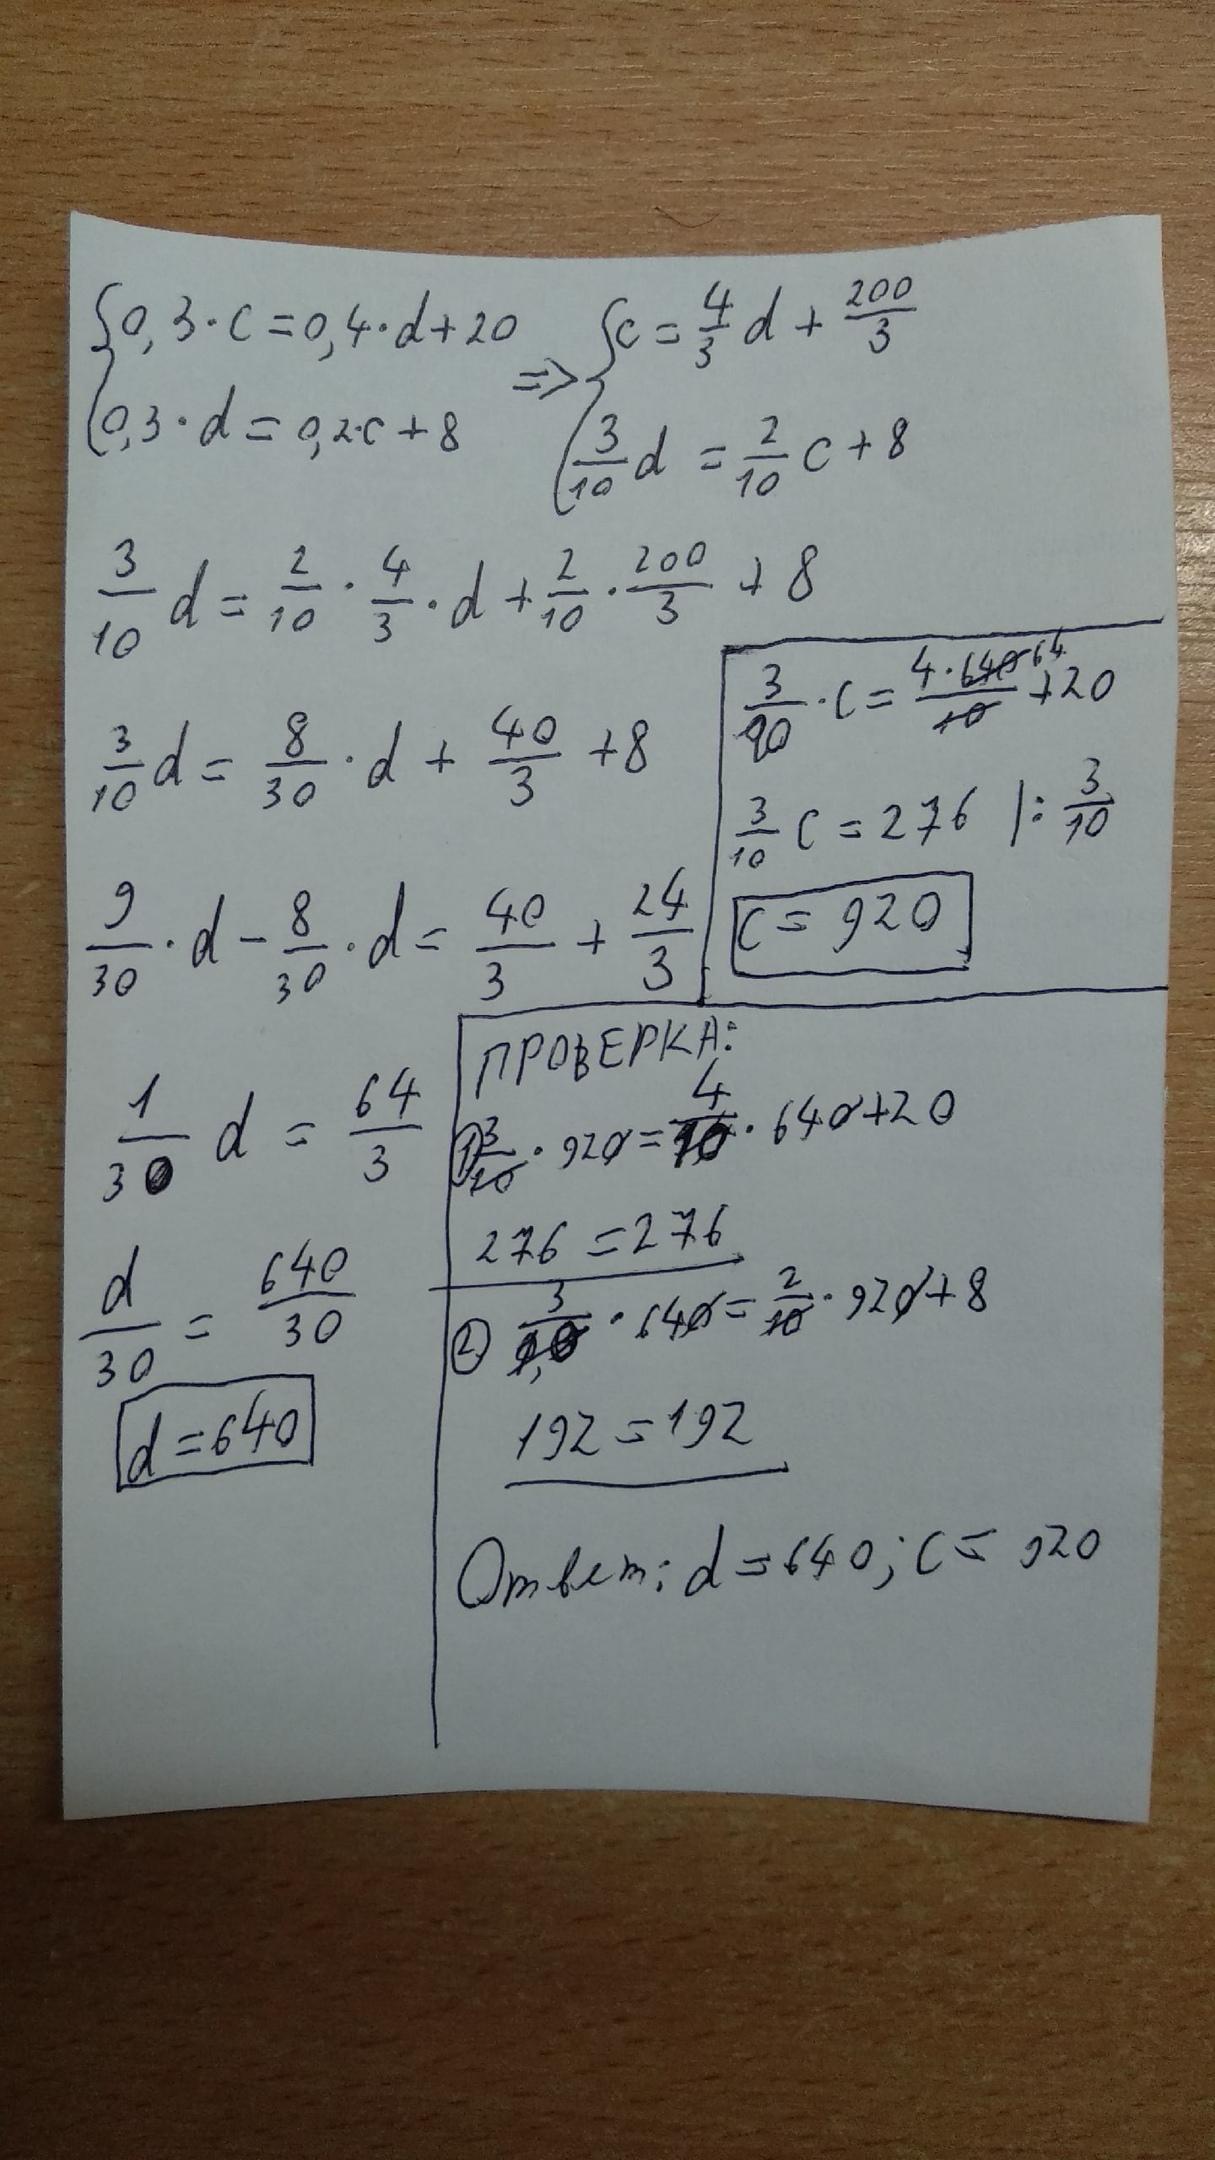 {0,3·c=0,4·d+20 => {c=4/3 d+200/3
{0,3·d=0,2·c+8 {3/10 d=2/10 c+8
3/10 d=2/10·4/3·d+2/10·200/3+8
3/10 d=8/30·d+40/3+8
9/30·d-8/30·d=40/3+24/3
1/30 d=64/3
d/30=640/30
d=640
3/10·c=4·640 64/10+20
3/10 c=276 |:3/10
c=920
ПРОВЕРКА:
1) 3/10·920=4/10·640+20
276=276
2) 3/10·640=2/10·920+8
192=192
Ответ: d=640; c=920